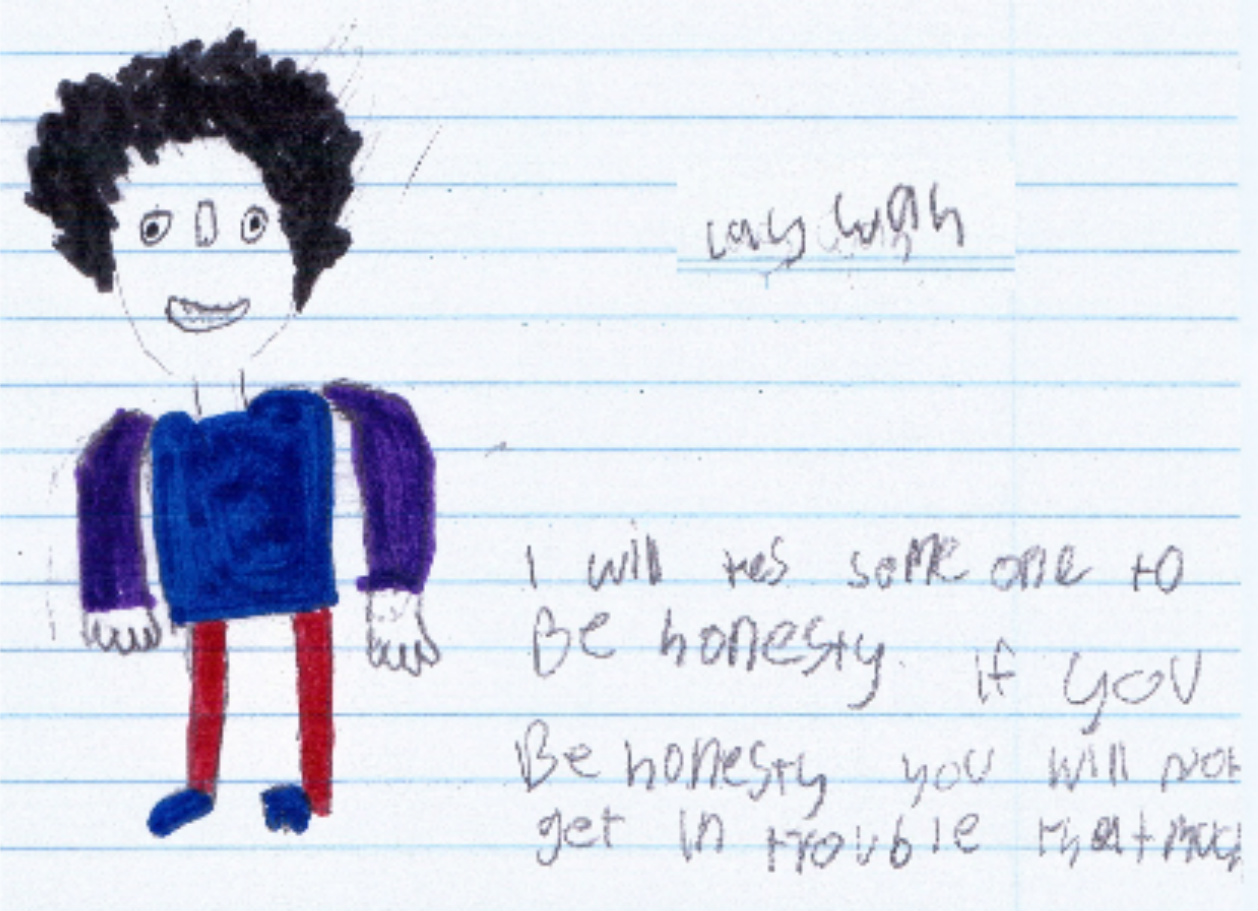 I will tes some one to
Be honesty. if you
Be honesty you will not
get in trouble that much